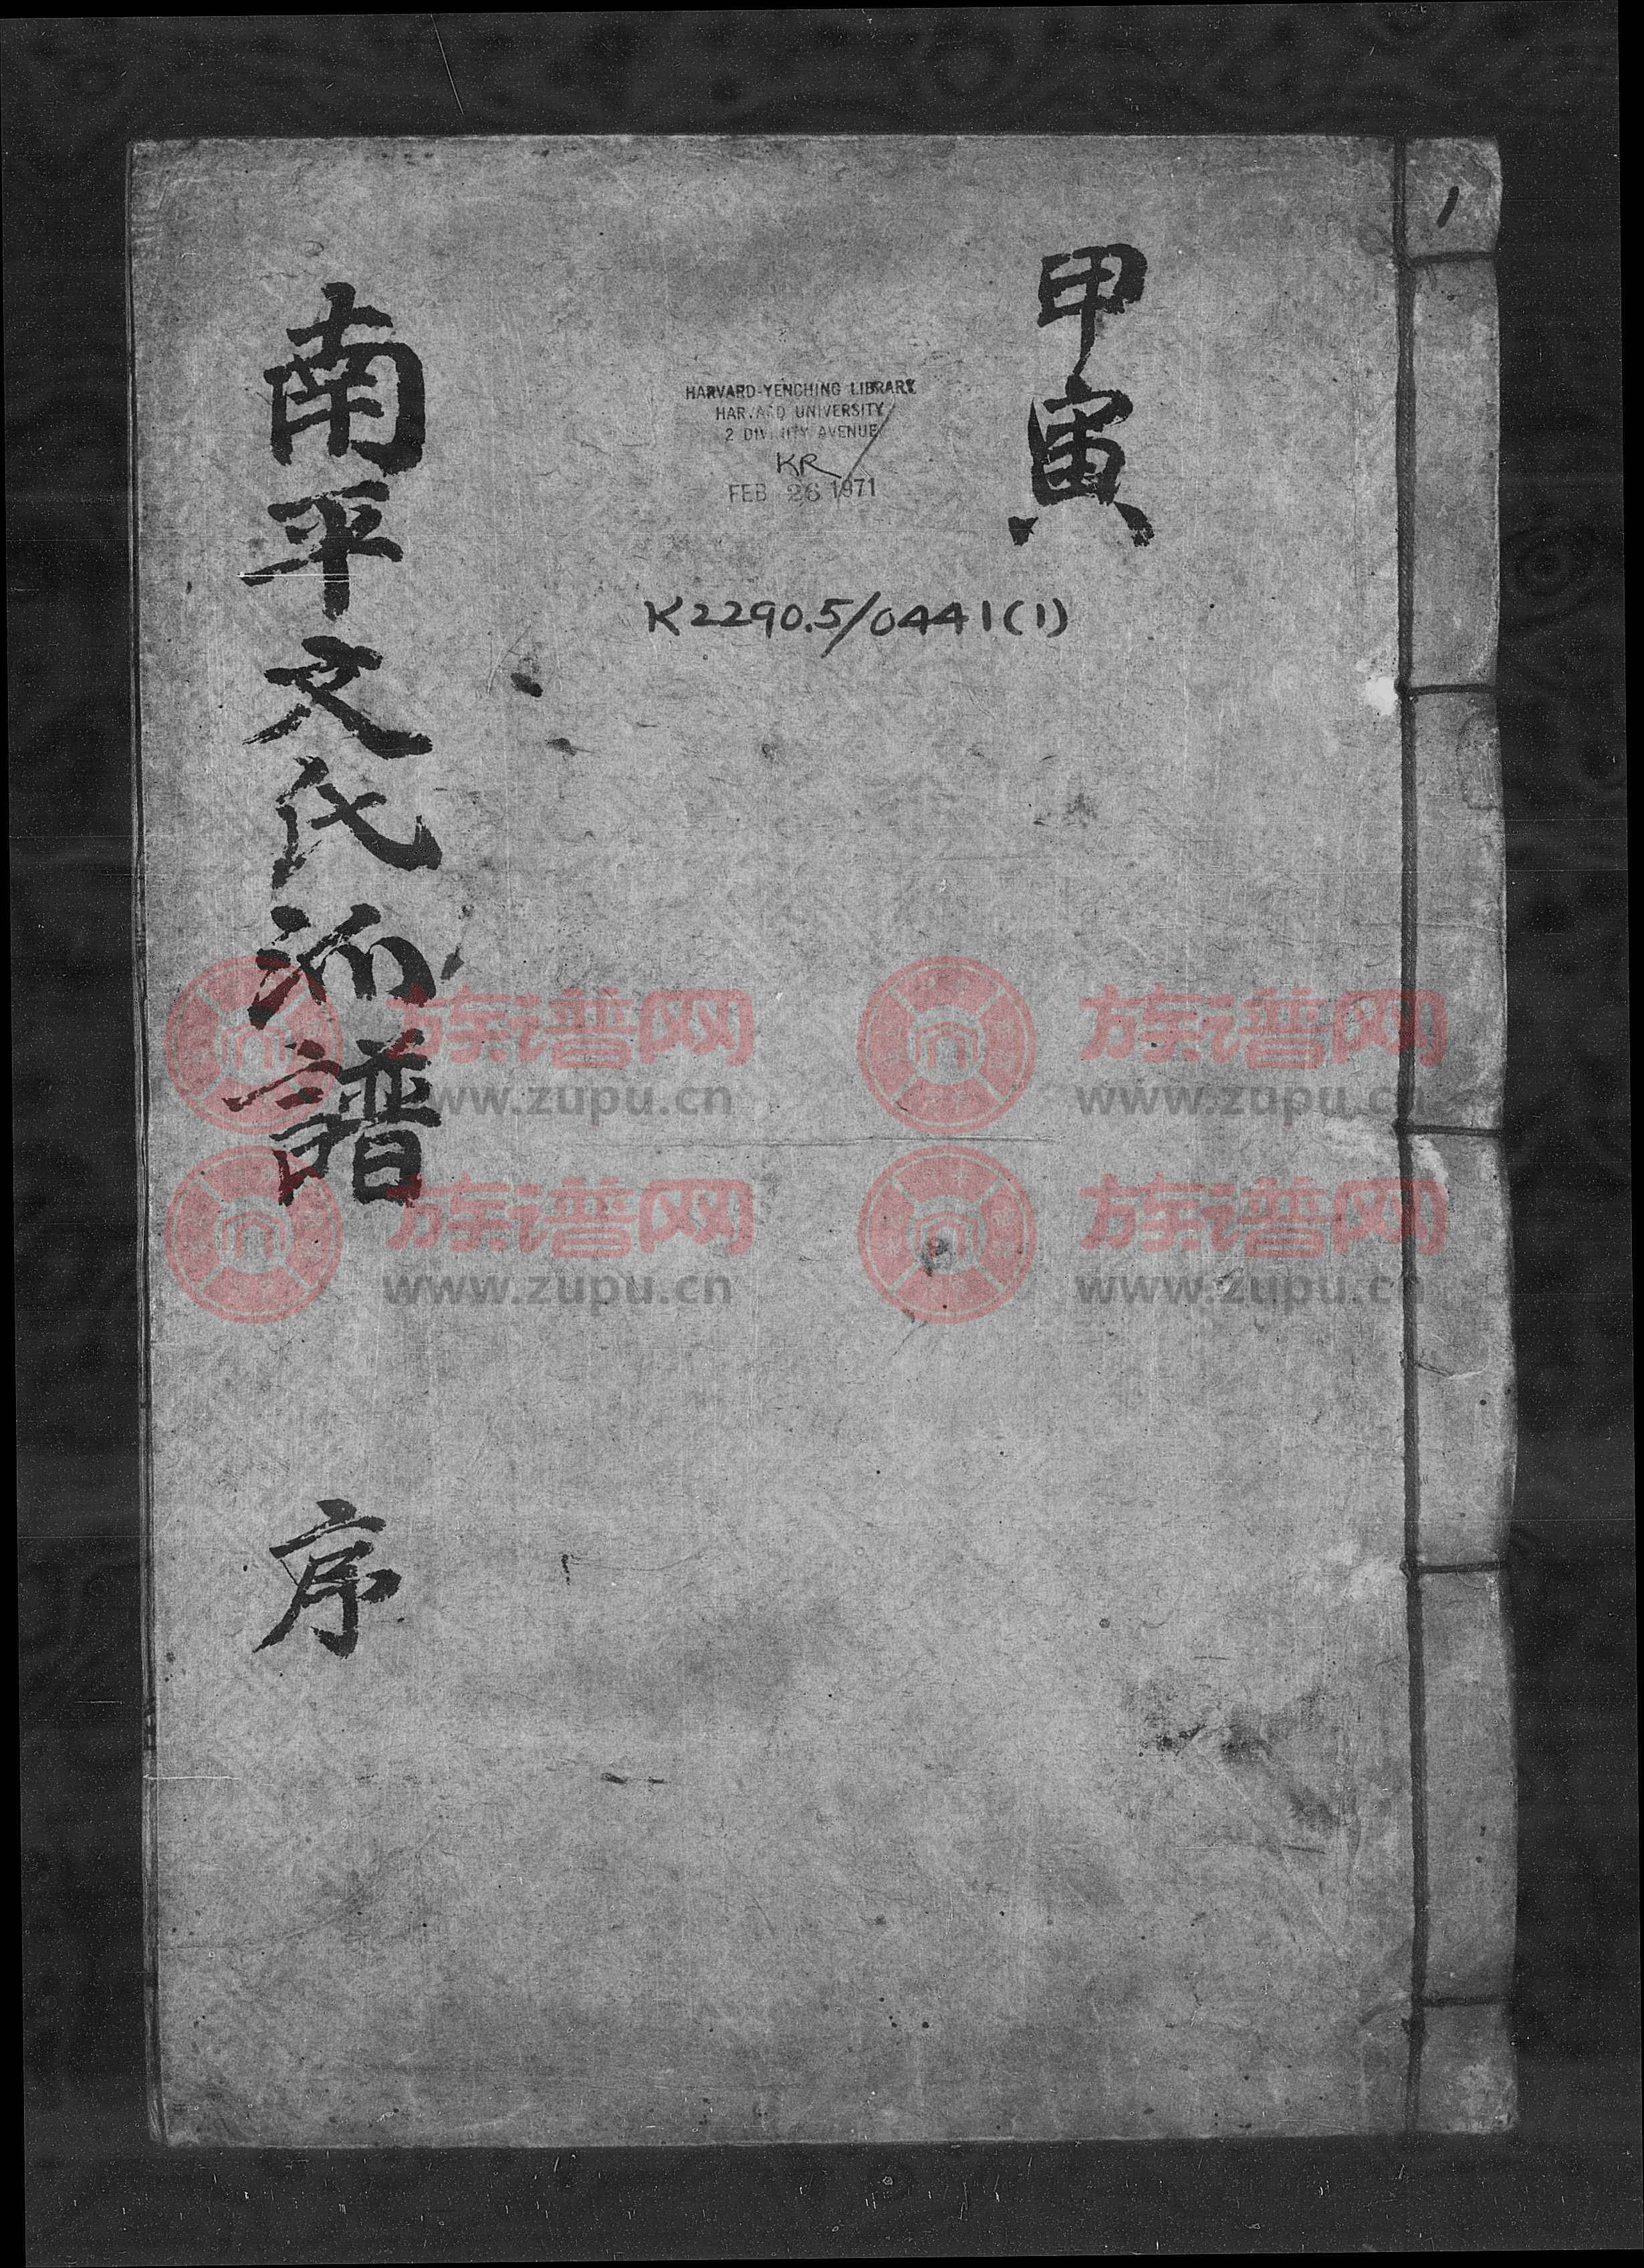 1
甲寅
HARVARD-YENCHING LIBRARY
HARVARD UNIVERSITY
2 DIVINITY AVENUE
KR
FEB 26 1971
K2290.5/0441(1)
南平文氏派譜 序
族谱网 族谱网
www.zupu.cn www.zupu.cn
族谱网 族谱网
www.zupu.cn www.zupu.cn